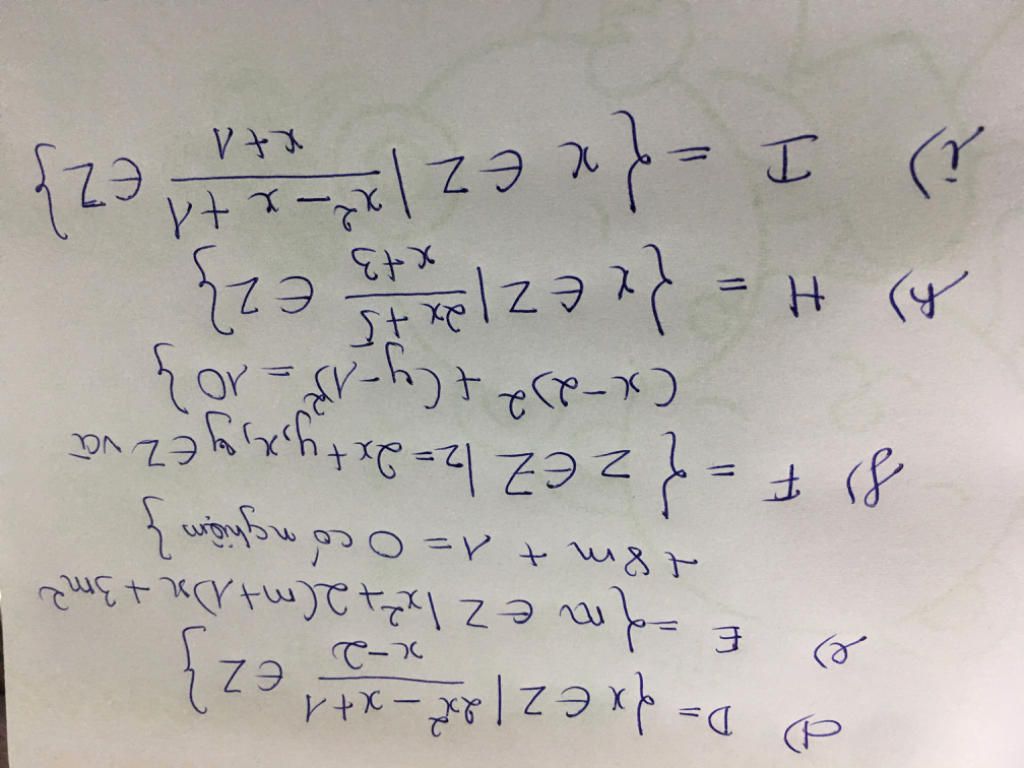 d) D = {x ∈ Z | 2x² - x + 1 / x - 2 ∈ Z}
e) E = {m ∈ Z | x² + 2(m+1)x + 3m²
+ 8m + 1 = 0 có nghiệm}
f) F = {z ∈ Z | z = 2x + y, x, y ∈ Z và
(x-2)2 + (y-1)² = 10}
h) H = {x ∈ Z | 2x + 5 / x + 3 ∈ Z}
i) I = {x ∈ Z | x² - x + 1 / x + 1 ∈ Z}